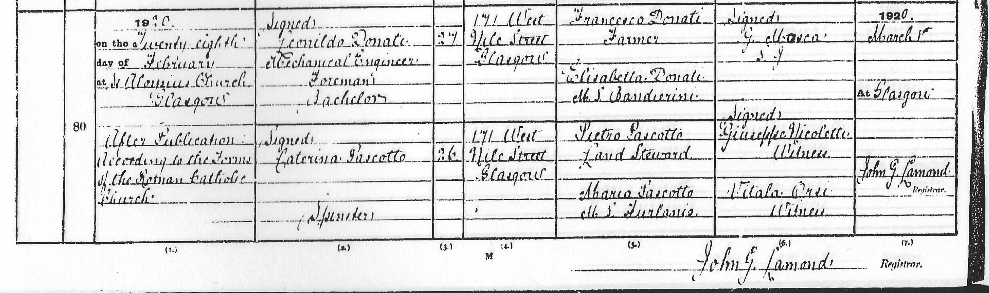 1920.
on the Twenty eighth
day of February
at St Aloysius Church
Glasgow
After Publication
According to the Forms
of the Roman Catholic
Church.
80
Signed
Leonildo Donati
Mechanical Engineer
Foreman
Bachelor
Signed
Caterina Pascotto
Spinster
27
26
171 West
Nile Street
Glasgow
171 West
Nile Street
Glasgow
Francesco Donati
Farmer
Elisabetta Donati
M. S. Bandierini
Pietro Pascotto
Land Steward
Maria Pascotto
M. S. Furlanis
Signed
G. Mosca
S. J.
Signed
Giuseppe Nicoletti
Witness
Vitala Orsi
Witness
1920.
March 1st
At Glasgow
John G. Lamond
Registrar.
(1.) (2.) (3.) (4.) (5.) (6.) (7.)
M
John G. Lamond Registrar.